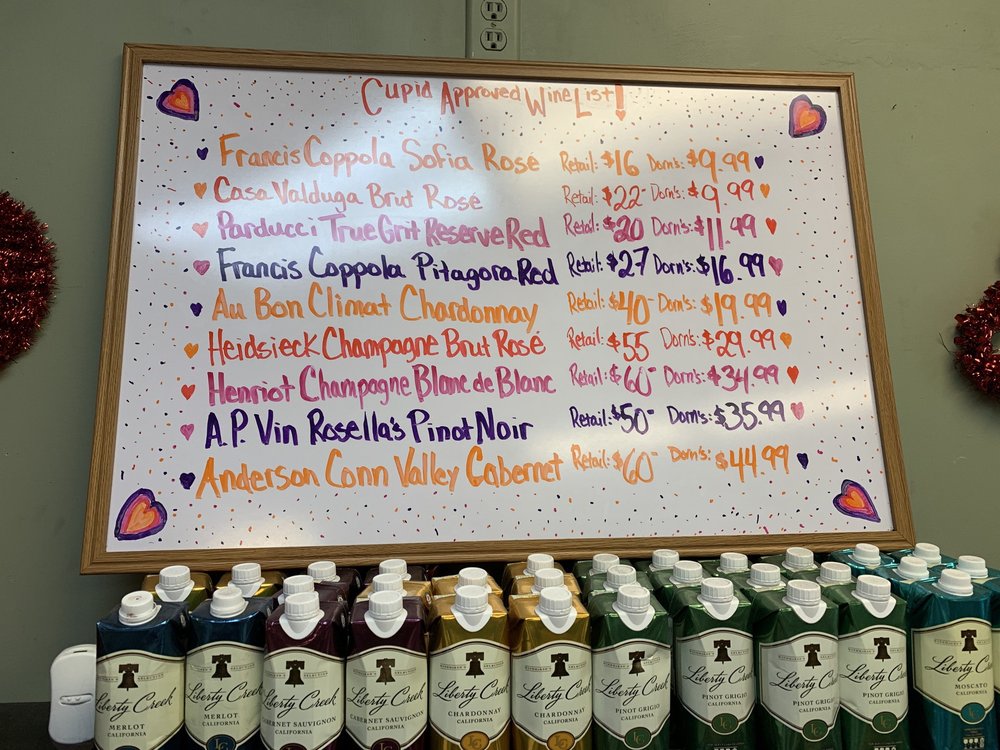 Cupid Approved Wine List!
Francis Coppola Sofia Rosé Retail: $16 Dorn's: $9.99
Casa Valduga Brut Rosé Retail: $22- Dorn's: $9.99
Parducci True Grit Reserve Red Retail: $20 Dorn's: $11.99
Francis Coppola Pitagora Red Retail: $27 Dorn's: $16.99
Au Bon Climat Chardonnay Retail: $40- Dorn's: $19.99
Heidsieck Champagne Brut Rosé Retail: $55 Dorn's: $29.99
Henriot Champagne Blanc de Blanc Retail: $60- Dorn's: $34.99
A.P. Vin Rosella's Pinot Noir Retail: $50- Dorn's: $35.99
Anderson Conn Valley Cabernet Retail: $60- Dorn's: $44.99
Liberty Creek
MERLOT
CALIFORNIA
Liberty Creek
MERLOT
CALIFORNIA
LC
Liberty Creek
CABERNET SAUVIGNON
CALIFORNIA
LC
Liberty Creek
CABERNET SAUVIGNON
CALIFORNIA
LC
Liberty Creek
CHARDONNAY
CALIFORNIA
LC
Liberty Creek
CHARDONNAY
CALIFORNIA
LC
Liberty Creek
PINOT GRIGIO
CALIFORNIA
LC
Liberty Creek
PINOT GRIGIO
CALIFORNIA
LC
Liberty Creek
PINOT GRIGIO
CALIFORNIA
LC
Liberty Creek
PINOT GRIGIO
CALIFORNIA
LC
Liberty Creek
MOSCATO
CALIFORNIA
LC